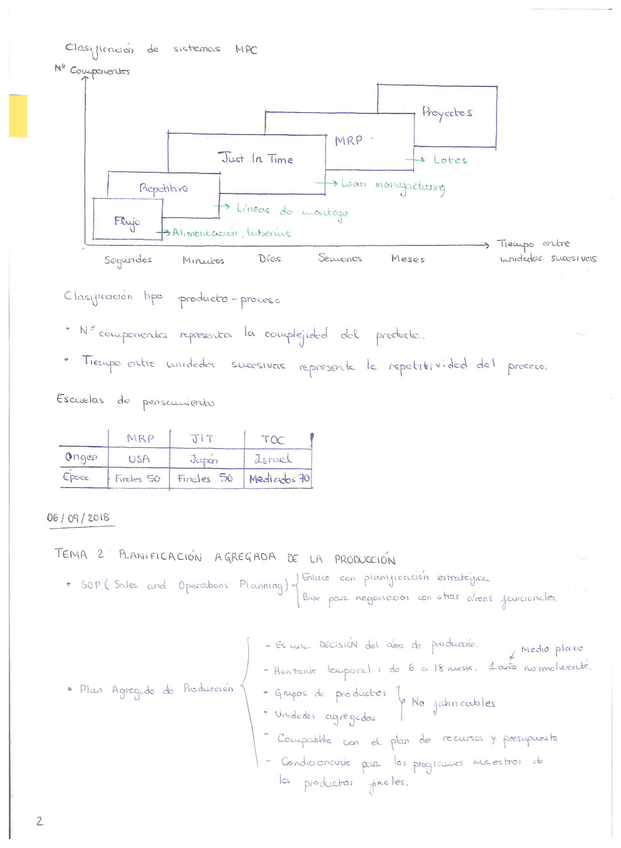 Clasificación de sistemas MPC
Nº Componentes
Proyectos
MRP
→ Lotes
Just In Time
→ Lean manufacturing
Repetitivo
→ Líneas de montaje
Flujo
→ Alimentación, tuberías
Segundos Minutos Días Semanas Meses
Tiempo entre
unidades sucesivas
Clasificación tipo producto-proceso
• Nº componentes representa la complejidad del producto.
• Tiempo entre unidades sucesivas representa la repetitividad del proceso.
Escuelas de pensamiento
MRP JIT TOC
Origen USA Japón Israel
Época Finales 50 Finales 50 Mediados 70
06/09/2018
TEMA 2: PLANIFICACIÓN AGREGADA DE LA PRODUCCIÓN
• SOP (Sales and Operations Planning)
Enlace con planificación estratégica
Base para negociación con otras áreas funcionales
• Plan Agregado de Producción
- Es una DECISIÓN del área de producción.
Medio plazo
- Horizonte temporal: de 6 a 18 meses. 1 año normalmente.
- Grupos de productos
- Unidades agregadas
No fabricables
- Compatible con el plan de recursos y presupuesto
- Condicionante para los programas maestros de
los productos finales.
2